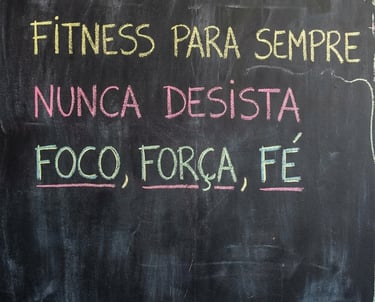 FiTNESS PARA SEMPRE
NUNCA DESiSTA
FOCO, FORÇA, FÉ